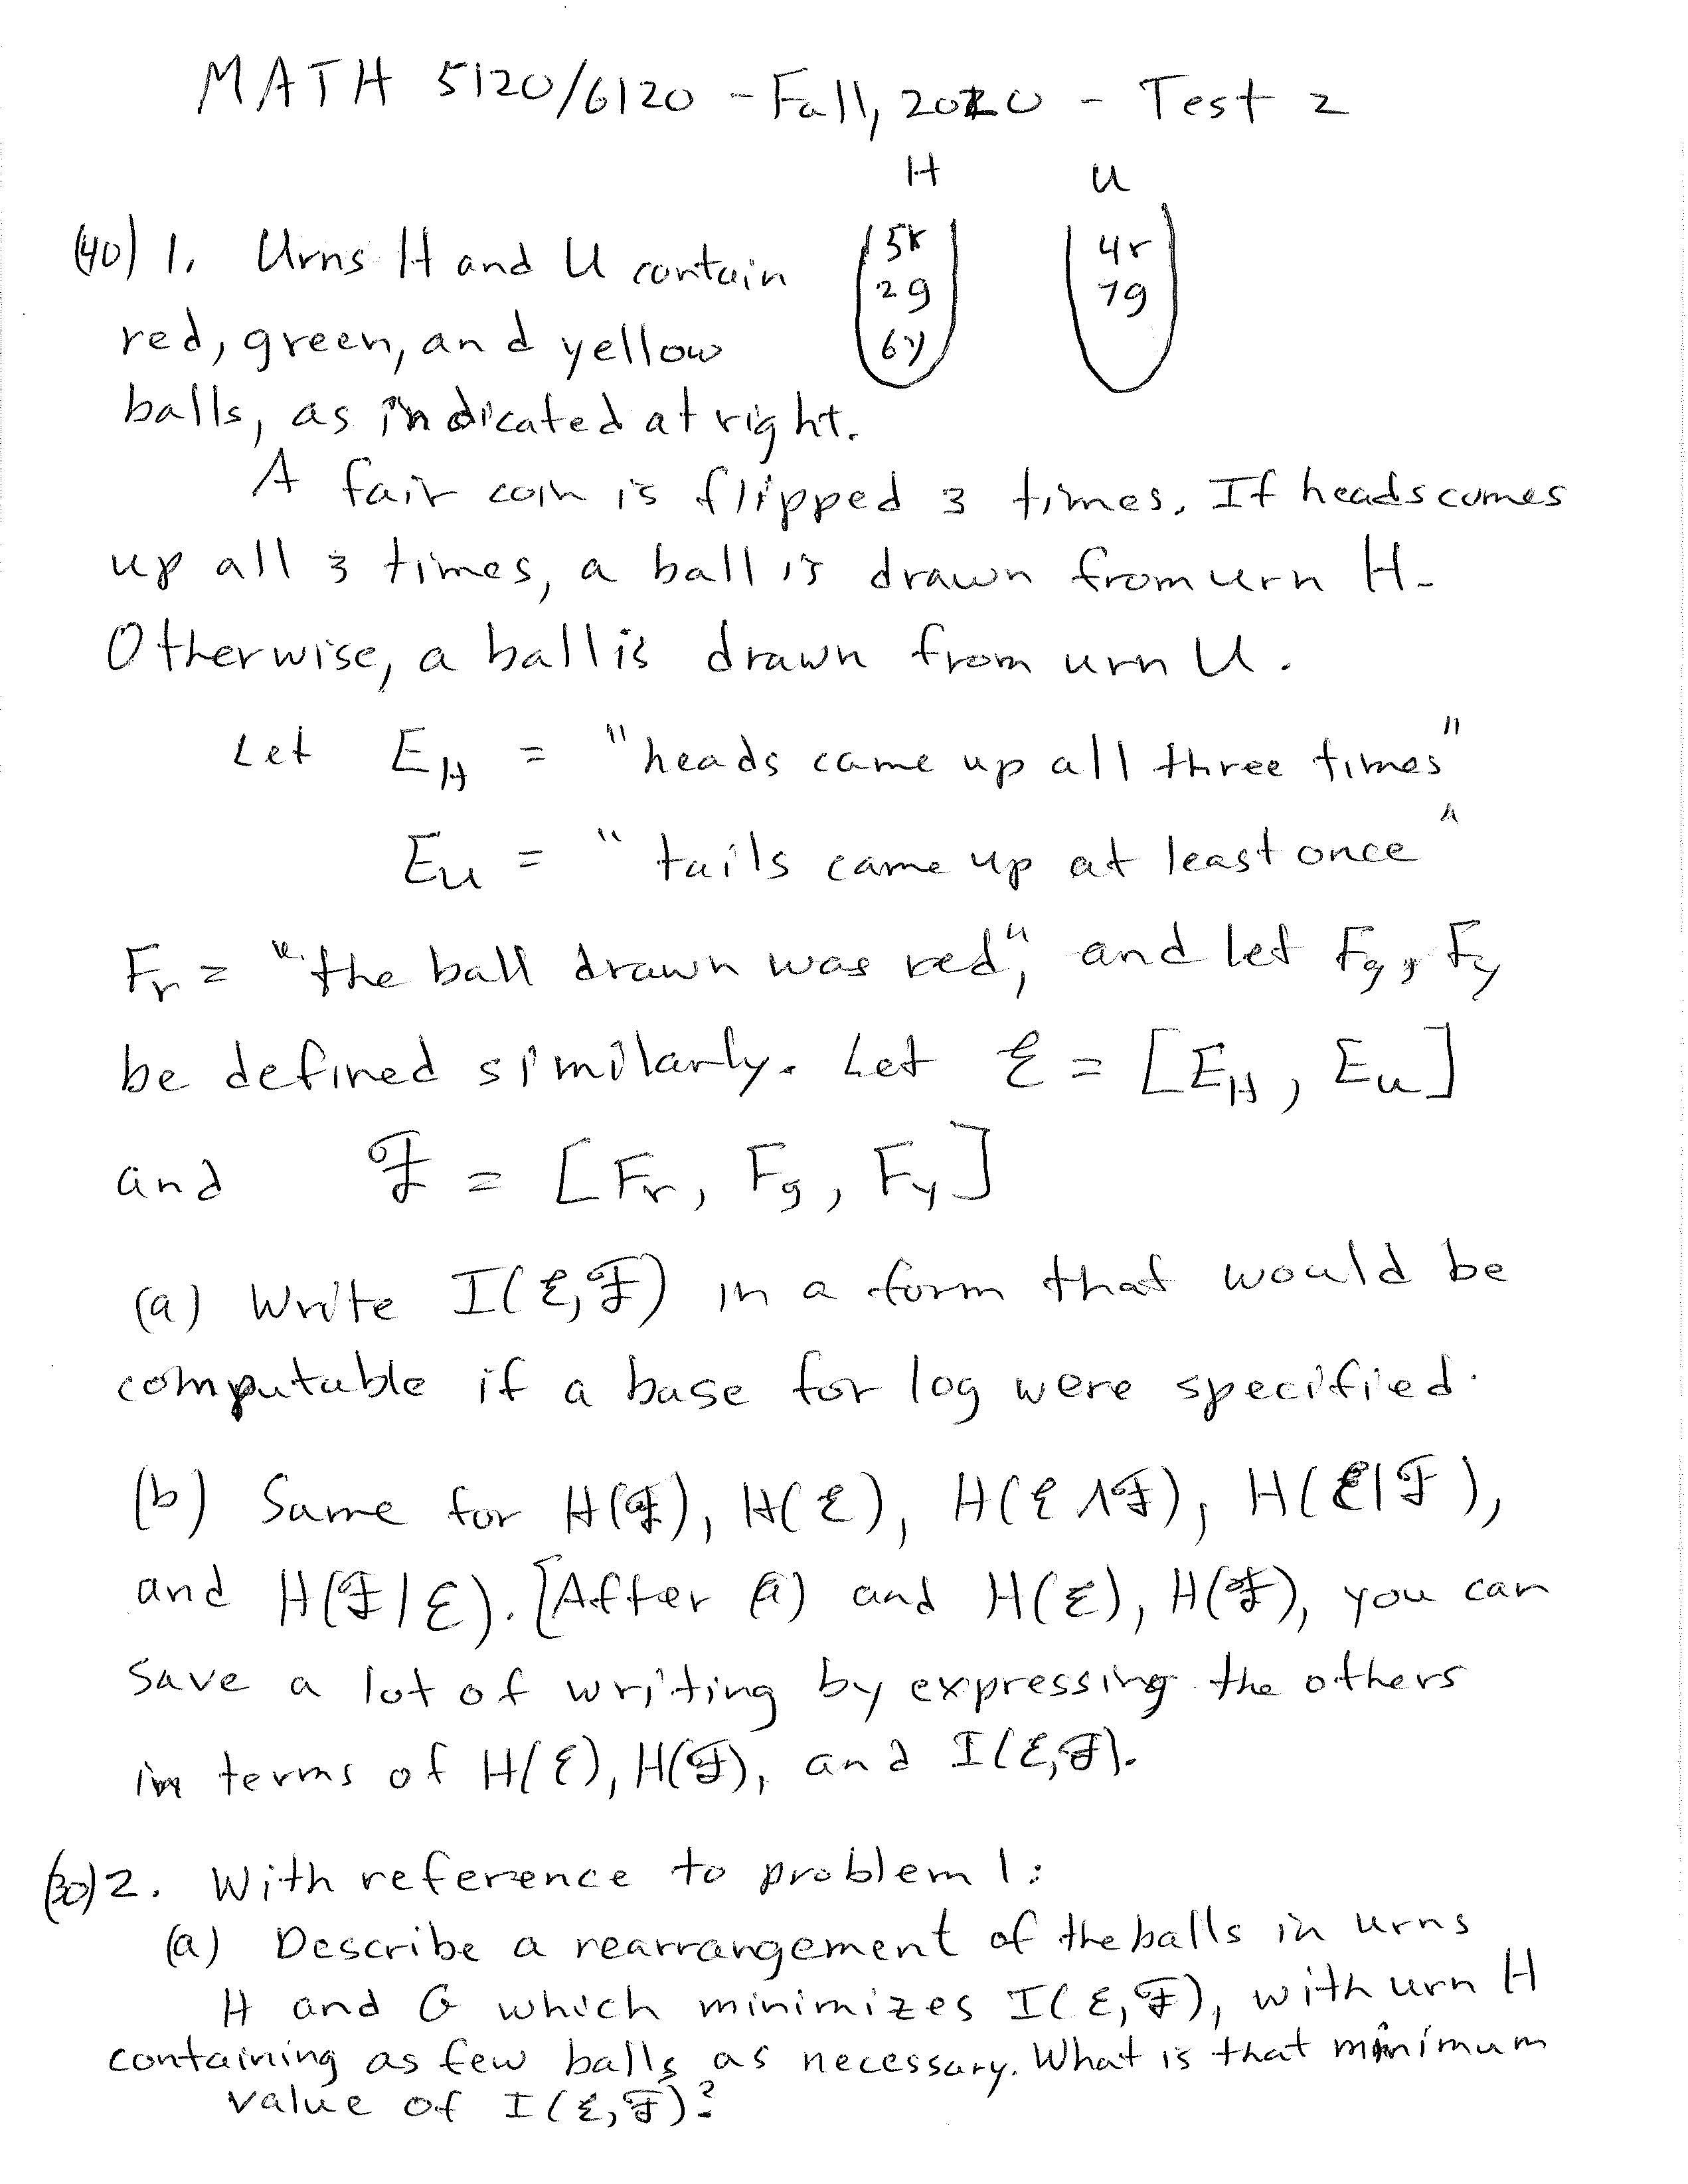 MATH 5120/6120 - Fall, 2020 - Test 2
H U
(40) 1. Urns H and U contain
5r 4r
2g 7g
red, green, and yellow
6y
balls, as indicated at right.
A fair coin is flipped 3 times. If heads comes
up all 3 times, a ball is drawn from urn H.
Otherwise, a ball is drawn from urn U.
Let E_H = "heads came up all three times"
E_U = "tails came up at least once"
F_r = "the ball drawn was red", and let F_g, F_y
be defined similarly. Let ℰ = [E_H, E_U]
and ℱ = [F_r, F_g, F_y]
(a) Write I(ℰ,ℱ) in a form that would be
computable if a base for log were specified.
(b) Same for H(ℱ), H(ℰ), H(ℰ∧ℱ), H(ℰ|ℱ),
and H(ℱ|ℰ). [After (a) and H(ℰ), H(ℱ), you can
save a lot of writing by expressing the others
in terms of H(ℰ), H(ℱ), and I(ℰ,ℱ).
(30) 2. With reference to problem 1:
(a) Describe a rearrangement of the balls in urns
H and G which minimizes I(ℰ,ℱ), with urn H
containing as few balls as necessary. What is that minimum
value of I(ℰ,ℱ)?